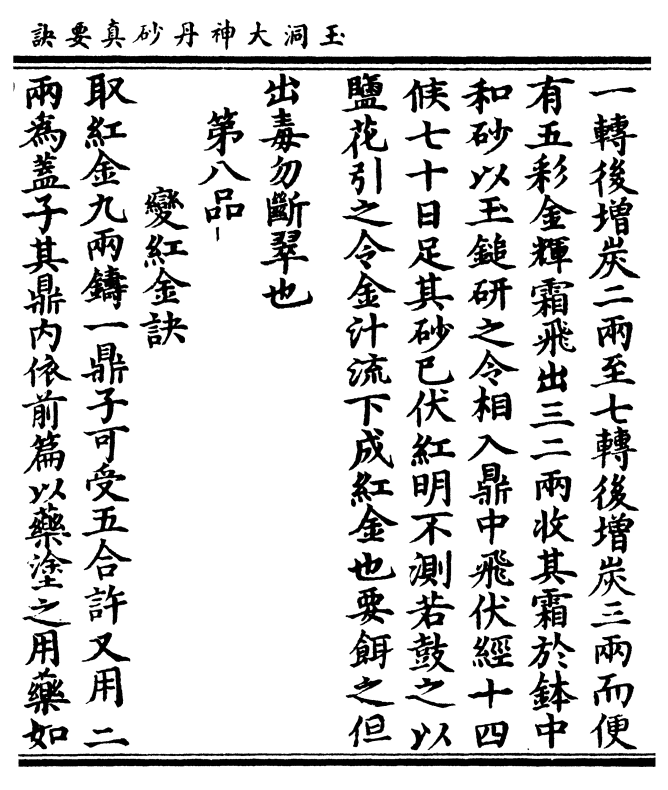 玉洞大神丹砂真要訣
一轉後增炭二兩至七轉後增炭三兩而便
有五彩金輝霜飛出三二兩收其霜於鉢中
和砂以玉鎚研之令相入鼎中飛伏經十四
候七十日足其砂已伏紅明不測若鼓之以
鹽花引之令金汁流下成紅金也要餌之但
出毒勿斷翠也
第八品
變紅金訣
取紅金九兩鑄一鼎子可受五合許又用二
兩爲蓋子其鼎內依前篇以藥塗之用藥如